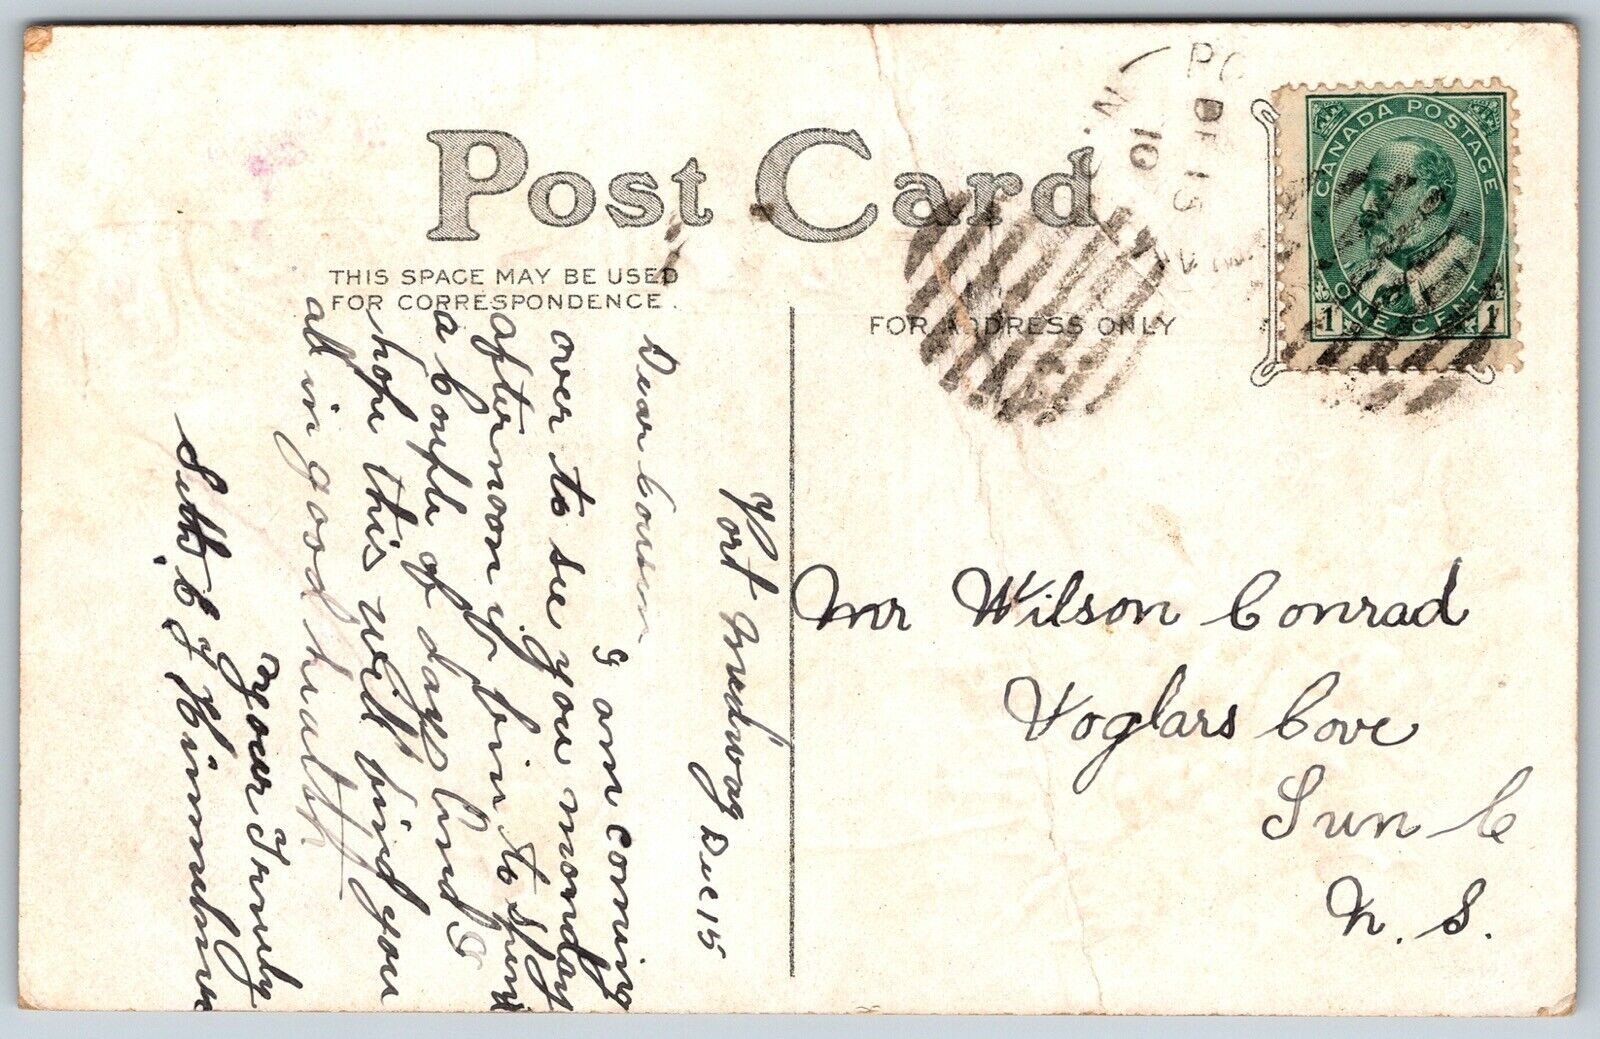 POST CARD
THIS SPACE MAY BE USED
FOR CORRESPONDENCE.
FOR ADDRESS ONLY
PO
DE 15
10
N.
CANADA POSTAGE
ONE CENT
1 1
Port Medway Dec 15
Dear Cousin
I am coming
over to see you monday
afternoon if fine to spend
a Couple of days and I
hope this will find you
all in good health.
your Truly
Seth C
Mr Wilson Conrad
Voglars Cove
Lun Co
N. S.